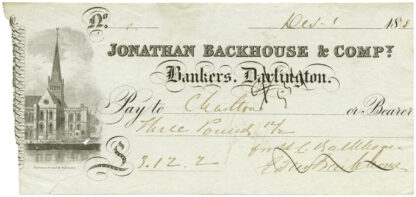 No. Dec. 1 18
JONATHAN BACKHOUSE & COMPY.
Bankers, Darlington.
Pay to Charlton or Bearer
Three Pounds 12/2
£ 3.12.2